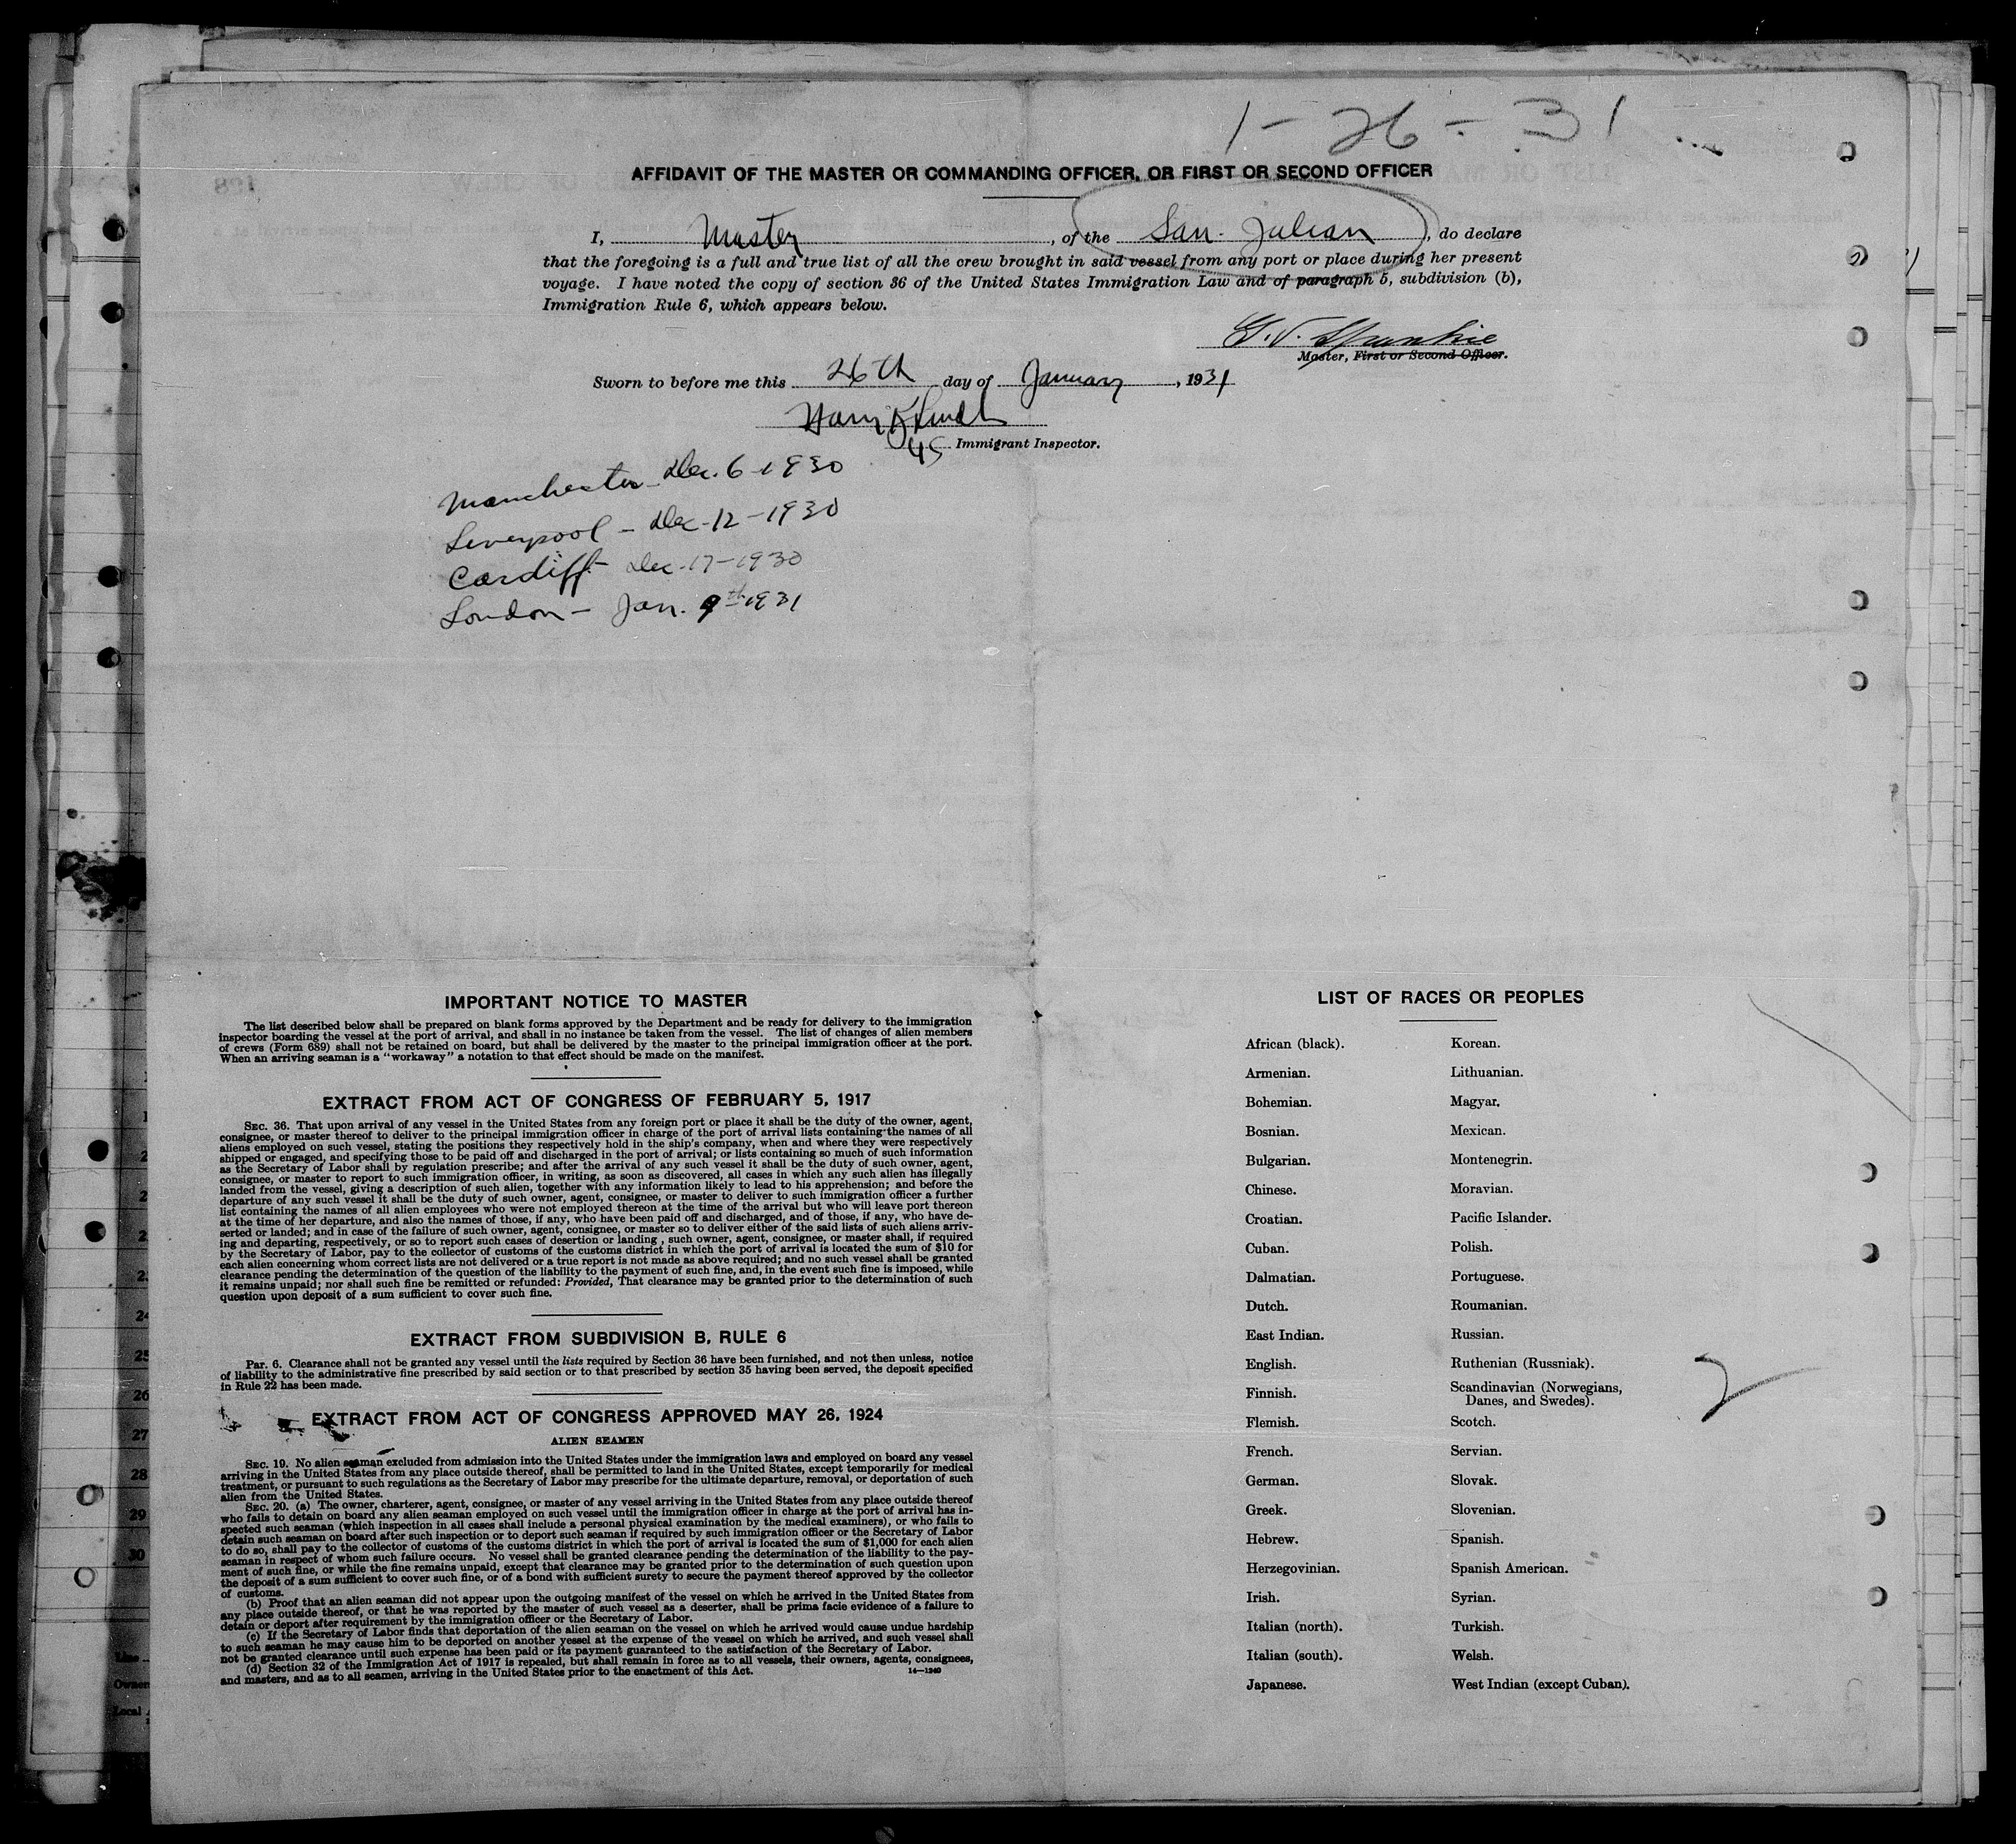 1-26-31
AFFIDAVIT OF THE MASTER OR COMMANDING OFFICER, OR FIRST OR SECOND OFFICER
I, Master, of the San Julian, do declare
that the foregoing is a full and true list of all the crew brought in said vessel from any port or place during her present
voyage. I have noted the copy of section 36 of the United States Immigration Law and of paragraph 5, subdivision (b),
Immigration Rule 6, which appears below.
Master, First or Second Officer.
Sworn to before me this 26th day of January, 1931
Harry
Immigrant Inspector.
Manchester - Dec. 6 - 1930
Liverpool - Dec - 12 - 1930
Cardiff - Dec - 17 - 1930
London - Jan. 9th 1931
IMPORTANT NOTICE TO MASTER
The list described below shall be prepared on blank forms approved by the Department and be ready for delivery to the immigration
inspector boarding the vessel at the port of arrival, and shall in no instance be taken from the vessel. The list of changes of alien members
of crews (Form 689) shall not be retained on board, but shall be delivered by the master to the principal immigration officer at the port.
When an arriving seaman is a "workaway" a notation to that effect should be made on the manifest.
EXTRACT FROM ACT OF CONGRESS OF FEBRUARY 5, 1917
SEC. 36. That upon arrival of any vessel in the United States from any foreign port or place it shall be the duty of the owner, agent,
consignee, or master thereof to deliver to the principal immigration officer in charge of the port of arrival lists containing the names of all
aliens employed on such vessel, stating the positions they respectively hold in the ship's company, when and where they were respectively
shipped or engaged, and specifying those to be paid off and discharged in the port of arrival; or lists containing so much of such information
as the Secretary of Labor shall by regulation prescribe; and after the arrival of any such vessel it shall be the duty of such owner, agent,
consignee, or master to report to such immigration officer, in writing, as soon as discovered, all cases in which any such alien has illegally
landed from the vessel, giving a description of such alien, together with any information likely to lead to his apprehension; and before the
departure of any such vessel it shall be the duty of such owner, agent, consignee, or master to deliver to such immigration officer a further
list containing the names of all alien employees who were not employed thereon at the time of the arrival but who will leave port thereon
at the time of her departure, and also the names of those, if any, who have been paid off and discharged, and of those, if any, who have de-
serted or landed; and in case of the failure of such owner, agent, consignee, or master so to deliver either of the said lists of such aliens arriv-
ing and departing, respectively, or so to report such cases of desertion or landing , such owner, agent, consignee, or master shall, if required
by the Secretary of Labor, pay to the collector of customs of the customs district in which the port of arrival is located the sum of $10 for
each alien concerning whom correct lists are not delivered or a true report is not made as above required; and no such vessel shall be granted
clearance pending the determination of the question of the liability to the payment of such fine, and, in the event such fine is imposed, while
it remains unpaid; nor shall such fine be remitted or refunded: Provided, That clearance may be granted prior to the determination of such
question upon deposit of a sum sufficient to cover such fine.
EXTRACT FROM SUBDIVISION B, RULE 6
Par. 6. Clearance shall not be granted any vessel until the lists required by Section 36 have been furnished, and not then unless, notice
of liability to the administrative fine prescribed by said section or to that prescribed by section 35 having been served, the deposit specified
in Rule 22 has been made.
EXTRACT FROM ACT OF CONGRESS APPROVED MAY 26, 1924
ALIEN SEAMEN
SEC. 19. No alien seaman excluded from admission into the United States under the immigration laws and employed on board any vessel
arriving in the United States from any place outside thereof, shall be permitted to land in the United States, except temporarily for medical
treatment, or pursuant to such regulations as the Secretary of Labor may prescribe for the ultimate departure, removal, or deportation of such
alien from the United States.
SEC. 20. (a) The owner, charterer, agent, consignee, or master of any vessel arriving in the United States from any place outside thereof
who fails to detain on board any alien seaman employed on such vessel until the immigration officer in charge at the port of arrival has in-
spected such seaman (which inspection in all cases shall include a personal physical examination by the medical examiners), or who fails to
detain such seaman on board after such inspection or to deport such seaman if required by such immigration officer or the Secretary of Labor
to do so, shall pay to the collector of customs of the customs district in which the port of arrival is located the sum of $1,000 for each alien
seaman in respect of whom such failure occurs. No vessel shall be granted clearance pending the determination of the liability to the pay-
ment of such fine, or while the fine remains unpaid, except that clearance may be granted prior to the determination of such question upon
the deposit of a sum sufficient to cover such fine, or of a bond with sufficient surety to secure the payment thereof approved by the collector
of customs.
(b) Proof that an alien seaman did not appear upon the outgoing manifest of the vessel on which he arrived in the United States from
any place outside thereof, or that he was reported by the master of such vessel as a deserter, shall be prima facie evidence of a failure to
detain or deport after requirement by the immigration officer or the Secretary of Labor.
(c) If the Secretary of Labor finds that deportation of the alien seaman on the vessel on which he arrived would cause undue hardship
to such seaman he may cause him to be deported on another vessel at the expense of the vessel on which he arrived, and such vessel shall
not be granted clearance until such expense has been paid or its payment guaranteed to the satisfaction of the Secretary of Labor.
(d) Section 32 of the Immigration Act of 1917 is repealed, but shall remain in force as to all vessels, their owners, agents, consignees,
and masters, and as to all seamen, arriving in the United States prior to the enactment of this Act.
14—1240
LIST OF RACES OR PEOPLES
African (black).
Armenian.
Bohemian.
Bosnian.
Bulgarian.
Chinese.
Croatian.
Cuban.
Dalmatian.
Dutch.
East Indian.
English.
Finnish.
Flemish.
French.
German.
Greek.
Hebrew.
Herzegovinian.
Irish.
Italian (north).
Italian (south).
Japanese.
Korean.
Lithuanian.
Magyar.
Mexican.
Montenegrin.
Moravian.
Pacific Islander.
Polish.
Portuguese.
Roumanian.
Russian.
Ruthenian (Russniak).
Scandinavian (Norwegians,
Danes, and Swedes).
Scotch.
Servian.
Slovak.
Slovenian.
Spanish.
Spanish American.
Syrian.
Turkish.
Welsh.
West Indian (except Cuban).
2
24
25
26
27
28
29
30